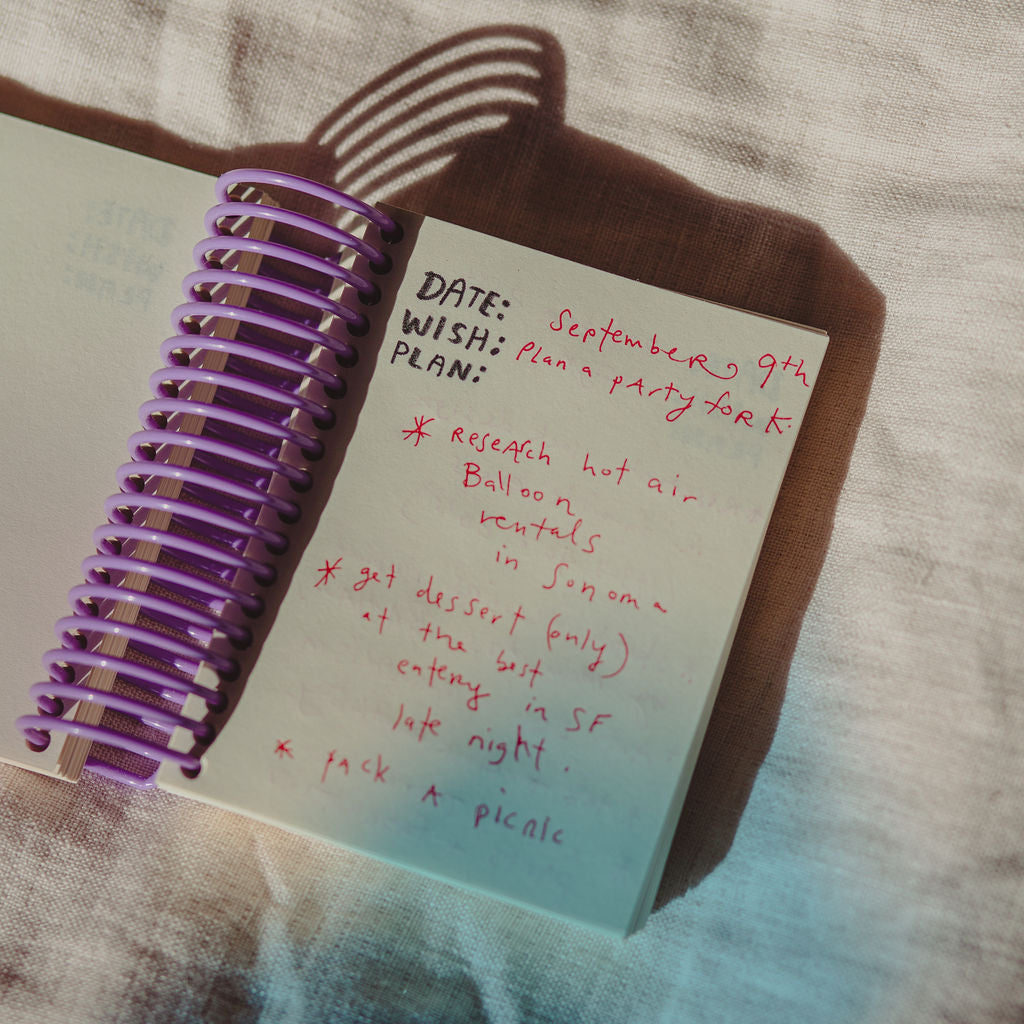 DATE: September, 9th
WISH: Plan a party for K.
PLAN:
* research hot air
Balloon
rentals
in Sonoma
* get dessert (only)
at the best
in SF
late night.
* pack a picnic